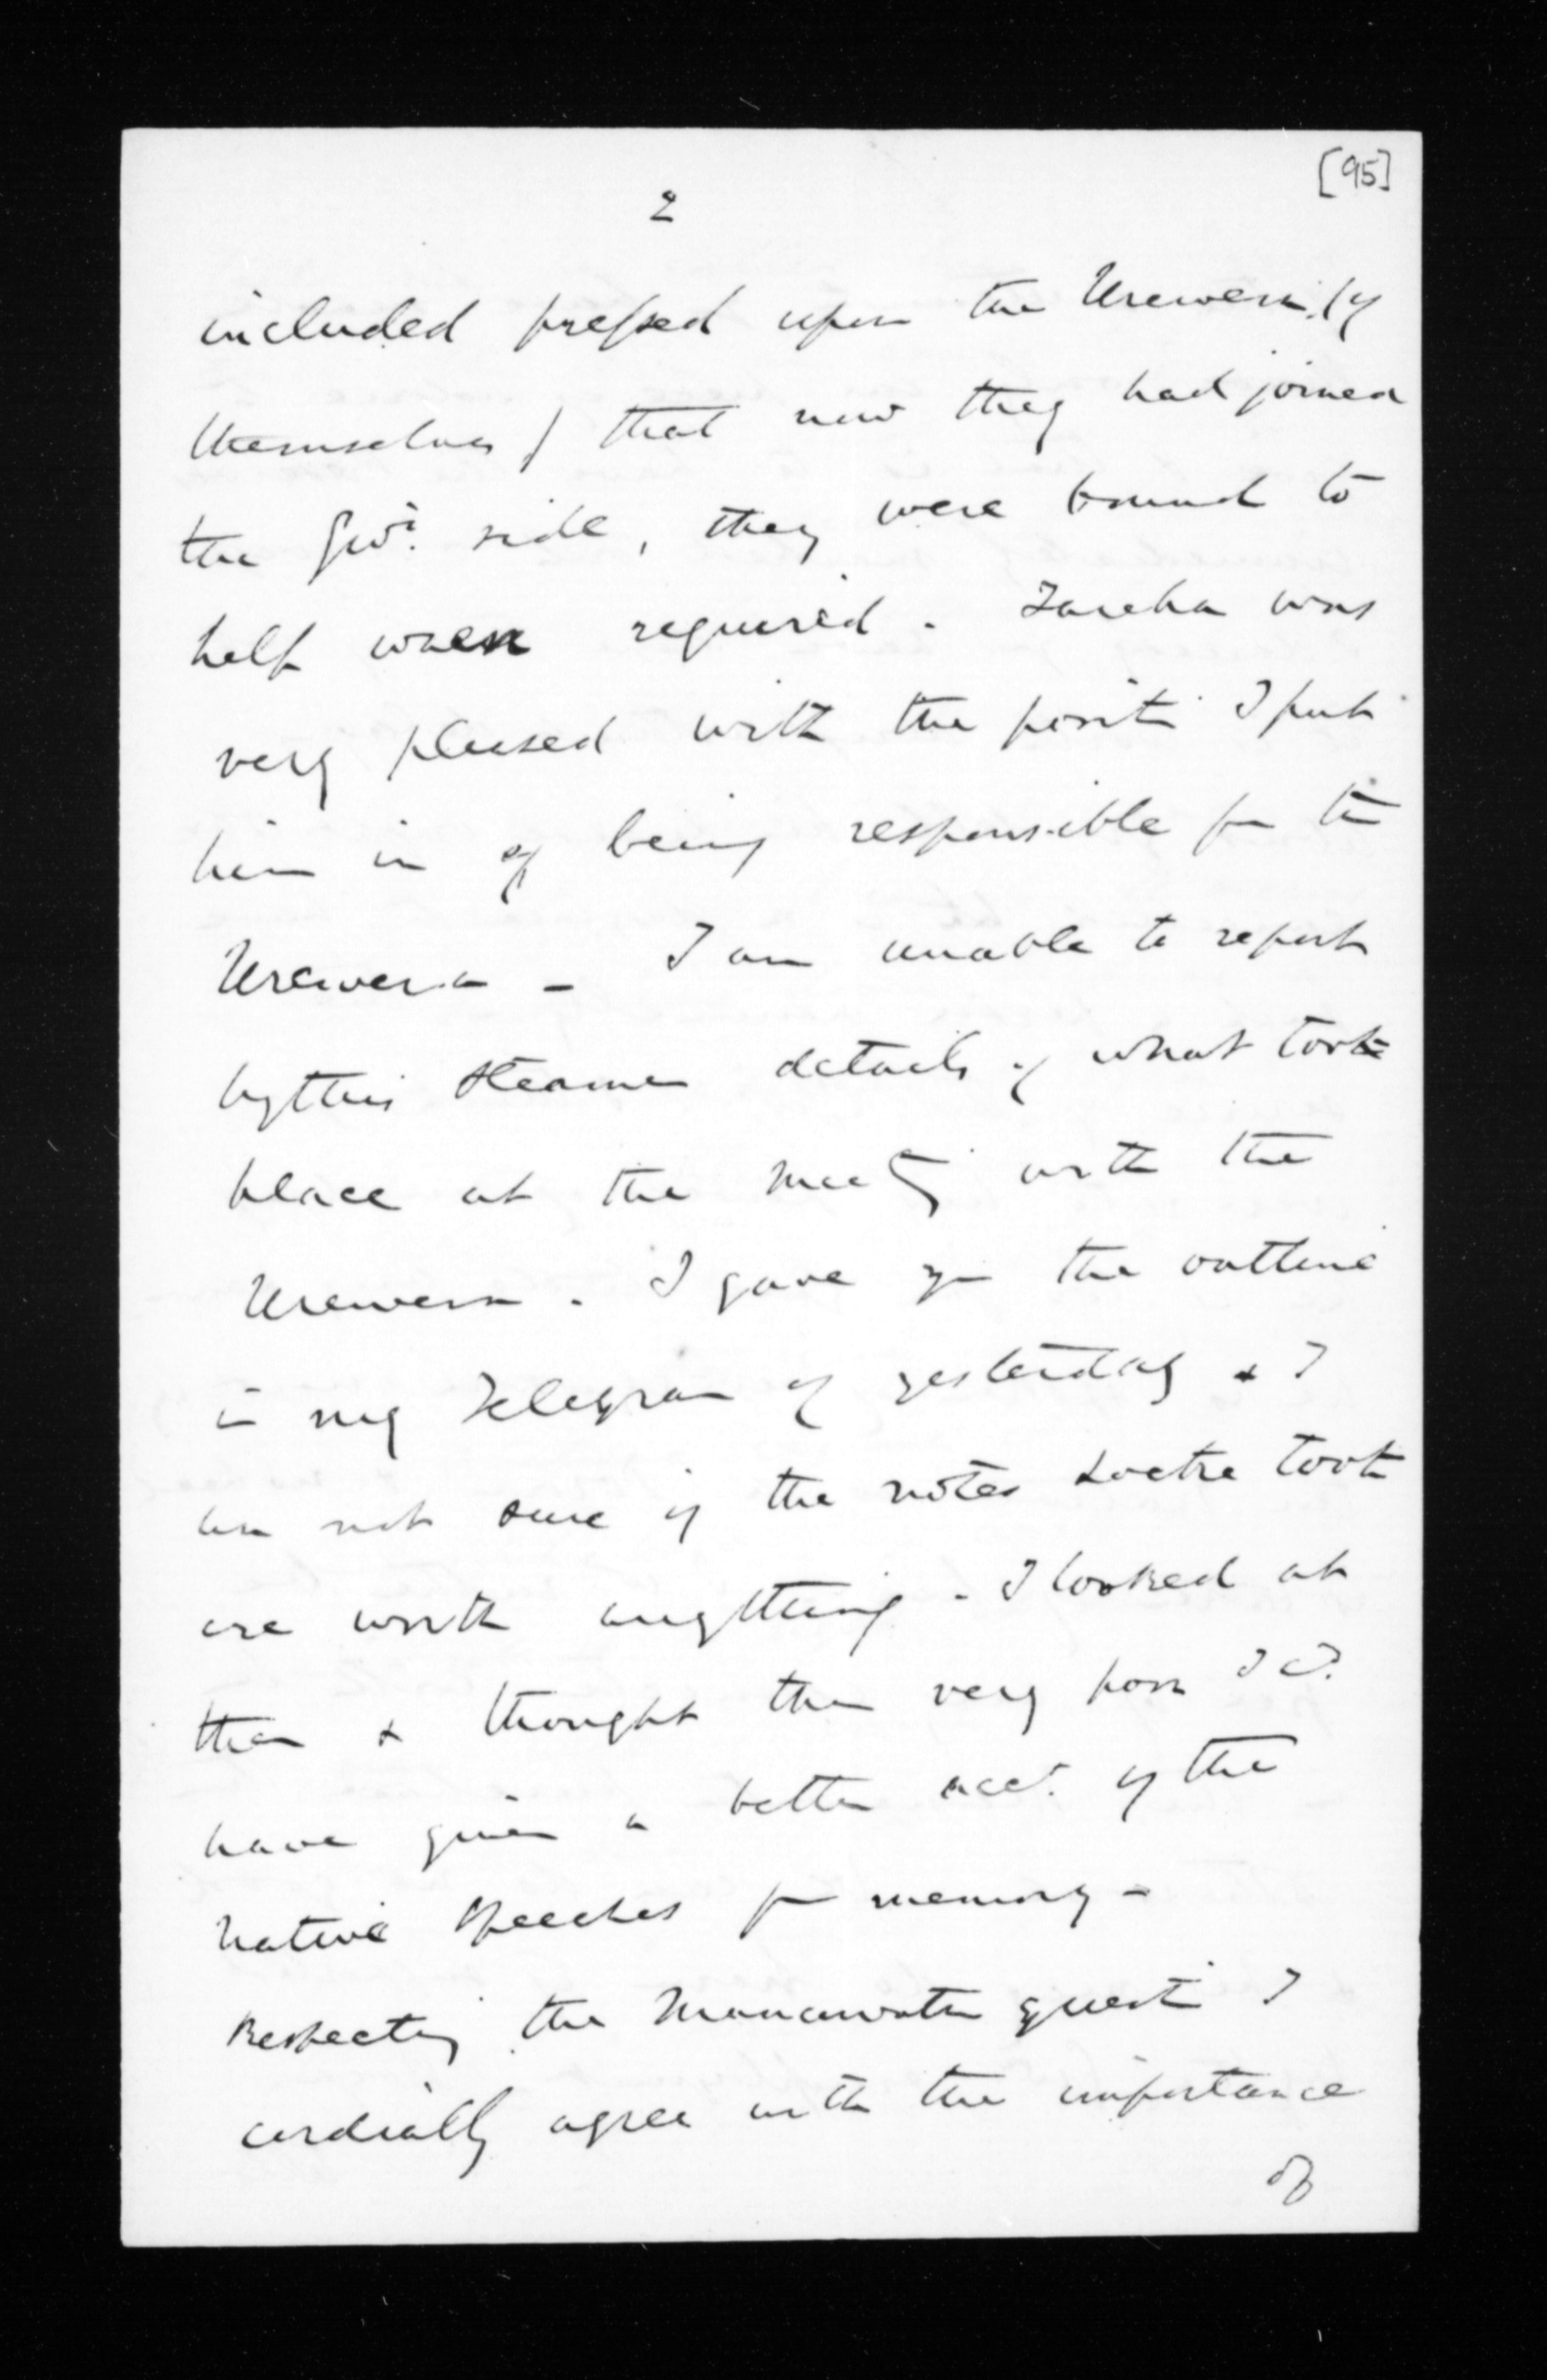 [95]
2
included pressed upon the Urewera (of
themselves) that now they had joined
the Govt. side, they were bound to
help when required. Tareha was
very pleased with the positn I put
him in of being responsible for the
Urewera - I am unable to report
by this steamer details of what took
place at the meetg with the
Urewera. I gave you the outline
in my Telegram of yesterday & I
am not sure if the notes Locke took
are worth anything - I looked at
them & thought them very poor I cd.
have given a better acct. of the
Native speeches fm memory -
Respecting the Manawatu questn I
cordially agree with the importance
of